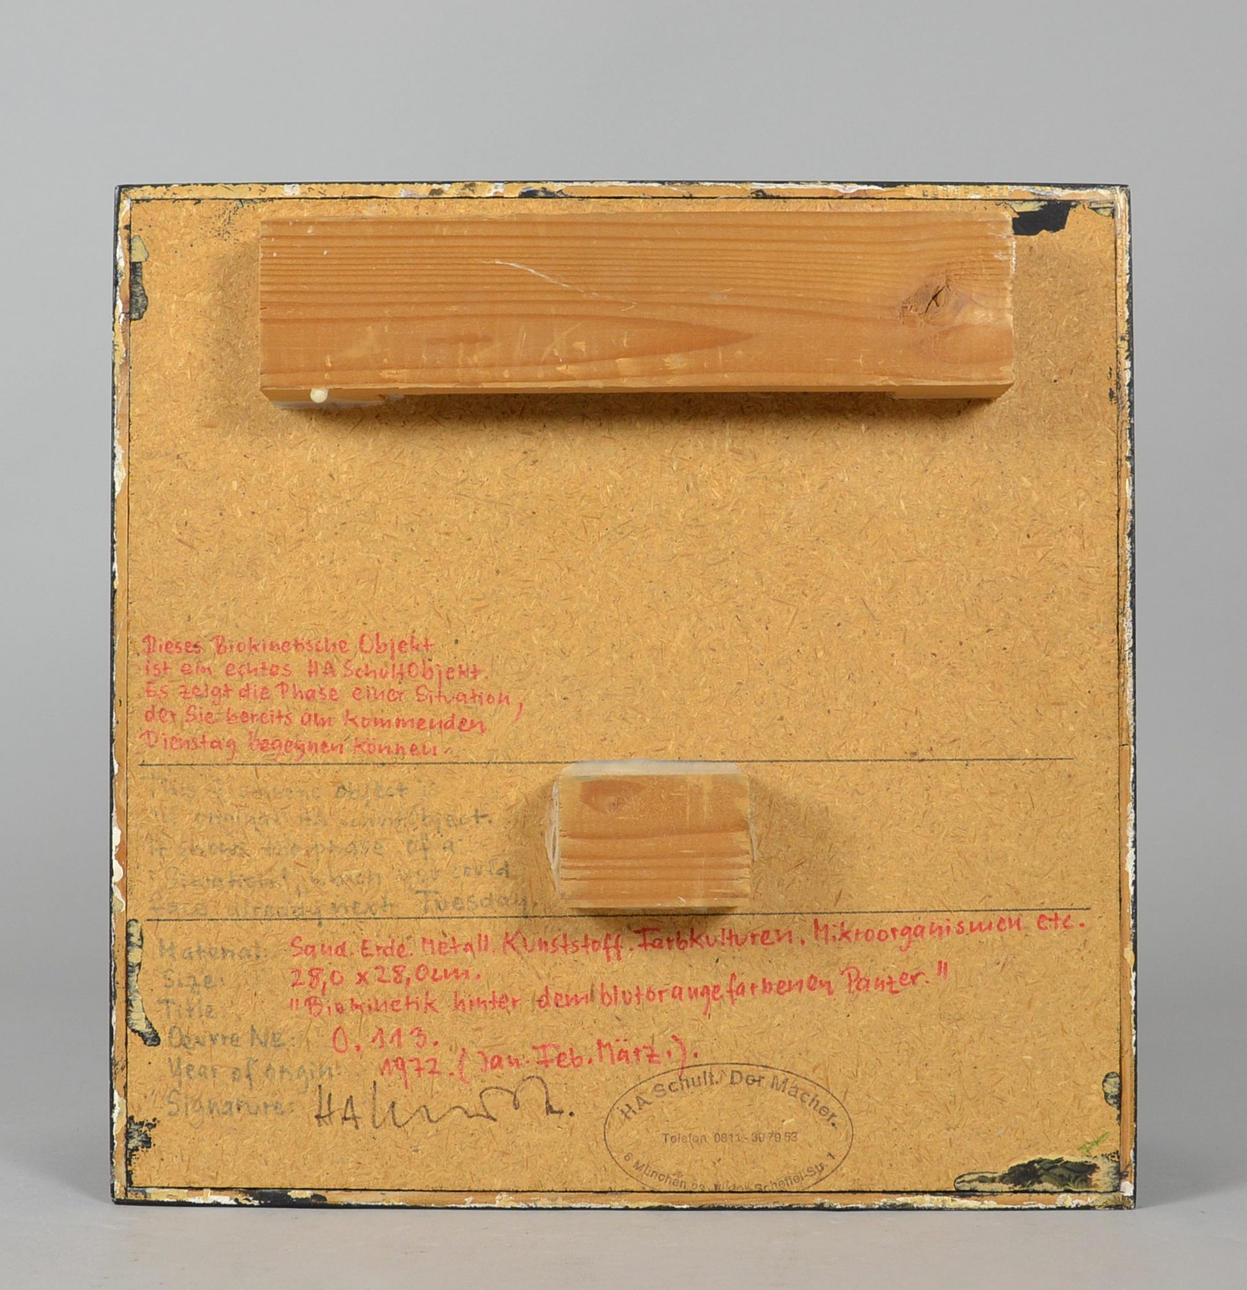 Dieses Biokinetische Objekt
ist ein echtes HA SchultObjekt.
Es zeigt die Phase einer Situation,
der Sie bereits am kommenden
Dienstag begegnen können.
This object
Object.
It shows the phase of a
Situation, which you could
already next Tuesday.
Material: Sand. Erde. Metall. Kunststoff. Farbkulturen. Mikroorganismen etc.
Size: 28,0 x 28,0cm.
Title: "Biokinetik hinter dem blutorangefarbenen Panzer."
Œuvre No: 0.113.
Year of origin: 1972. (Jan. Feb. März.).
Signature: HA
HA Schult. Der Macher.
Telefon 0811-
8 München 23, Scheffel-Str. 1